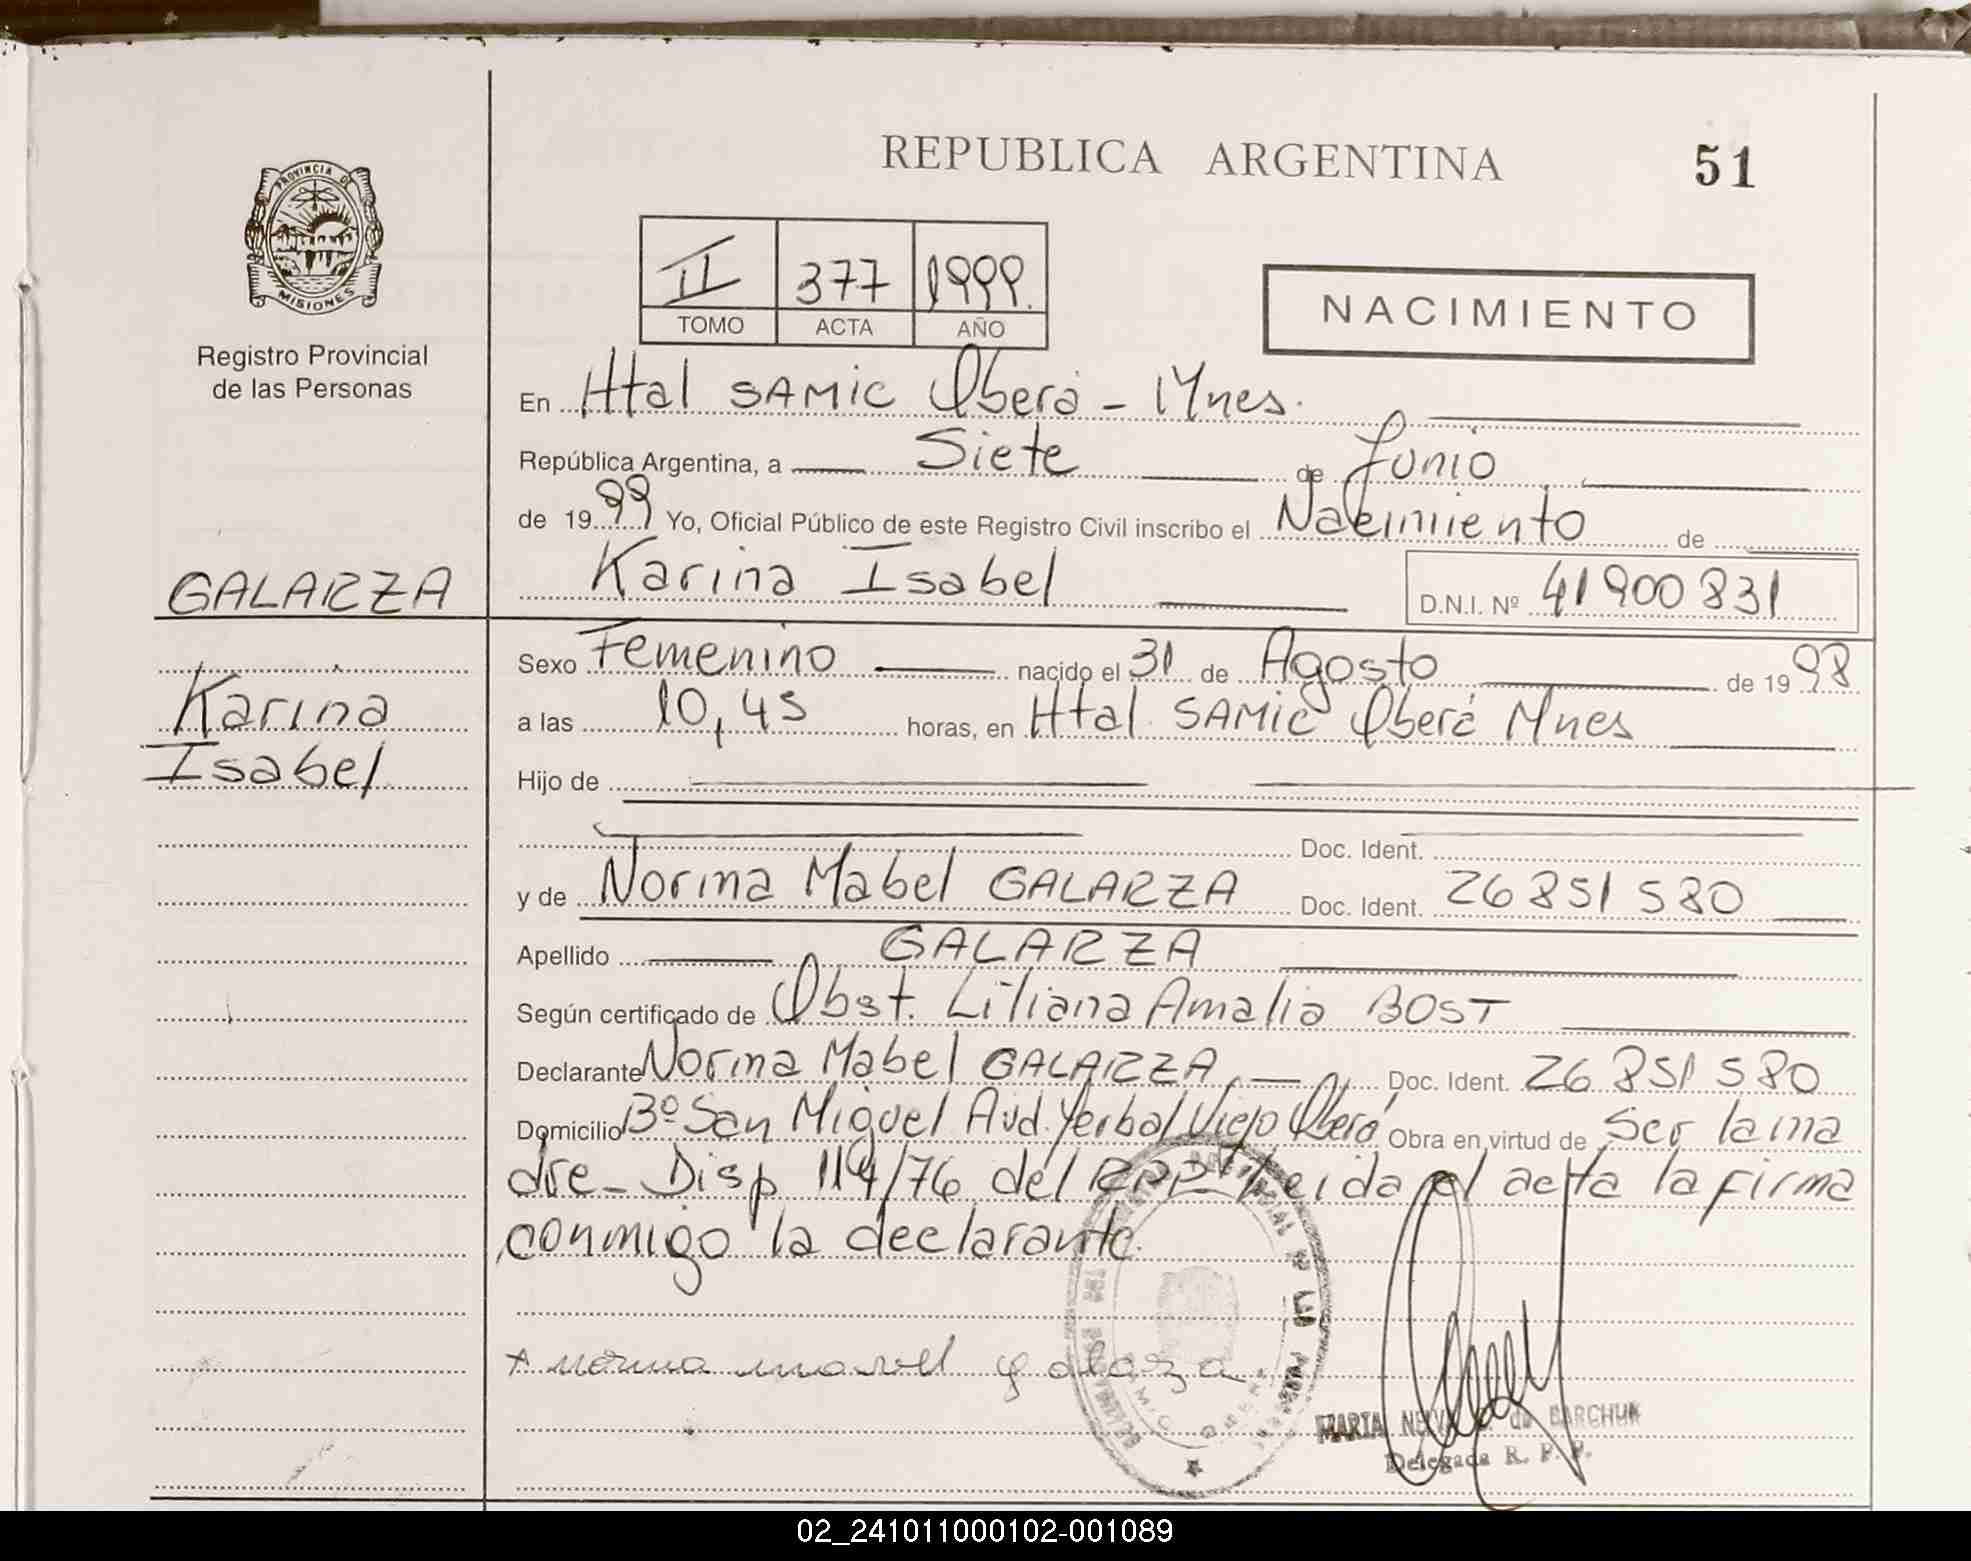 REPUBLICA ARGENTINA
51
PROVINCIA DE
MISIONES
Registro Provincial
de las Personas
II 377 1999.
TOMO ACTA AÑO
NACIMIENTO
En Htal SAMIC Oberá - Mnes.
República Argentina, a Siete de Junio
de 1999 Yo, Oficial Público de este Registro Civil inscribo el Nacimiento de
GALARZA
Karina Isabel D.N.I. Nº 41900831
Karina
Isabel
Sexo Femenino nacido el 31 de Agosto de 1998
a las 10,45 horas, en Htal. SAMIC Oberá Mnes
Hijo de
Doc. Ident.
y de Norma Mabel GALARZA Doc. Ident. 26851580
Apellido GALARZA
Según certificado de Obst. Liliana Amalia BOST
Declarante Norma Mabel GALARZA Doc. Ident. 26851580
Domicilio Bº San Miguel Avd. Yerbal Viejo Oberá Obra en virtud de Ser la ma
dre - Disp 114/76 del RPP leida el acta la firma
conmigo la declarante.
MARIA de BARCHUK
Delegada R. P. P.
02_241011000102-001089